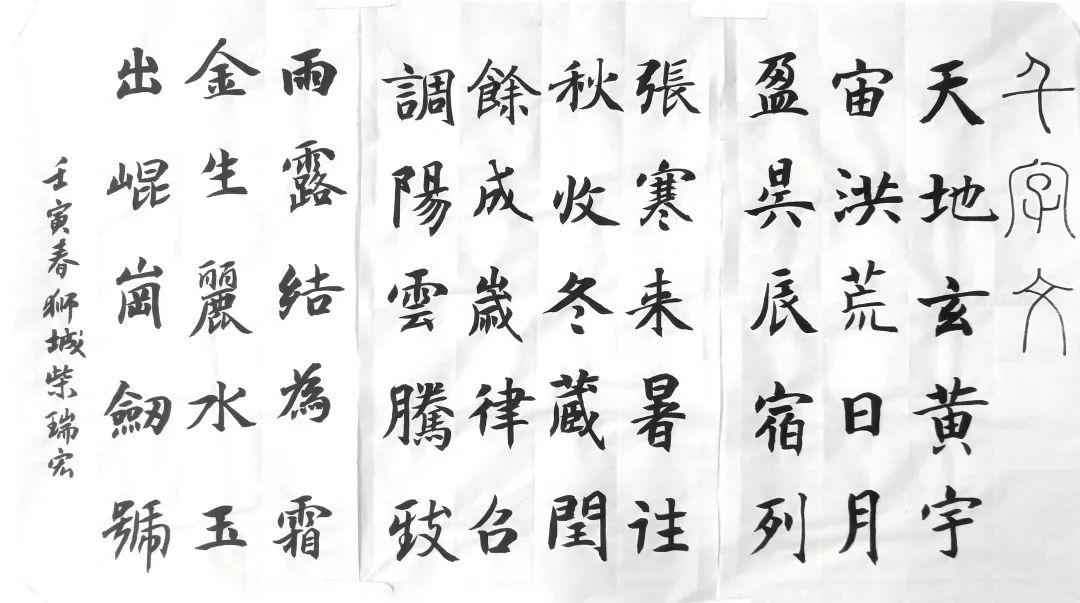 千字文
天地玄黃宇
宙洪荒日月
盈昃辰宿列
張寒来暑往
秋收冬蔵閏
餘成歲律召
調陽雲騰致
雨露結為霜
金生麗水玉
出崐崗劒號
壬寅春獅城柴瑞宏